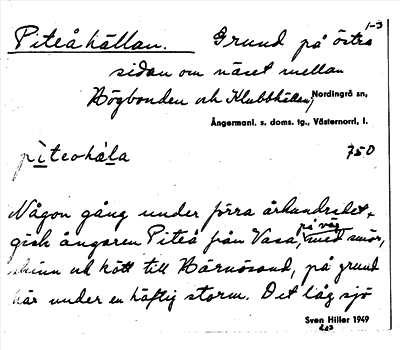 1-3
Piteåhällan. Grund på östra
sidan om näset mellan
Högbonden och Klubbhällan, Nordingrå sn,
Ångermanl. s. doms. tg., Västernorrl. l.
pìteohä̀la 750
Någon gång under förra århundradet,
gick ångaren Piteå från Vasa, på väg med smör,
skinn och kött till Härnösand, på grund
här under en häftig storm. Det låg sjö
Sven Hiller 1949